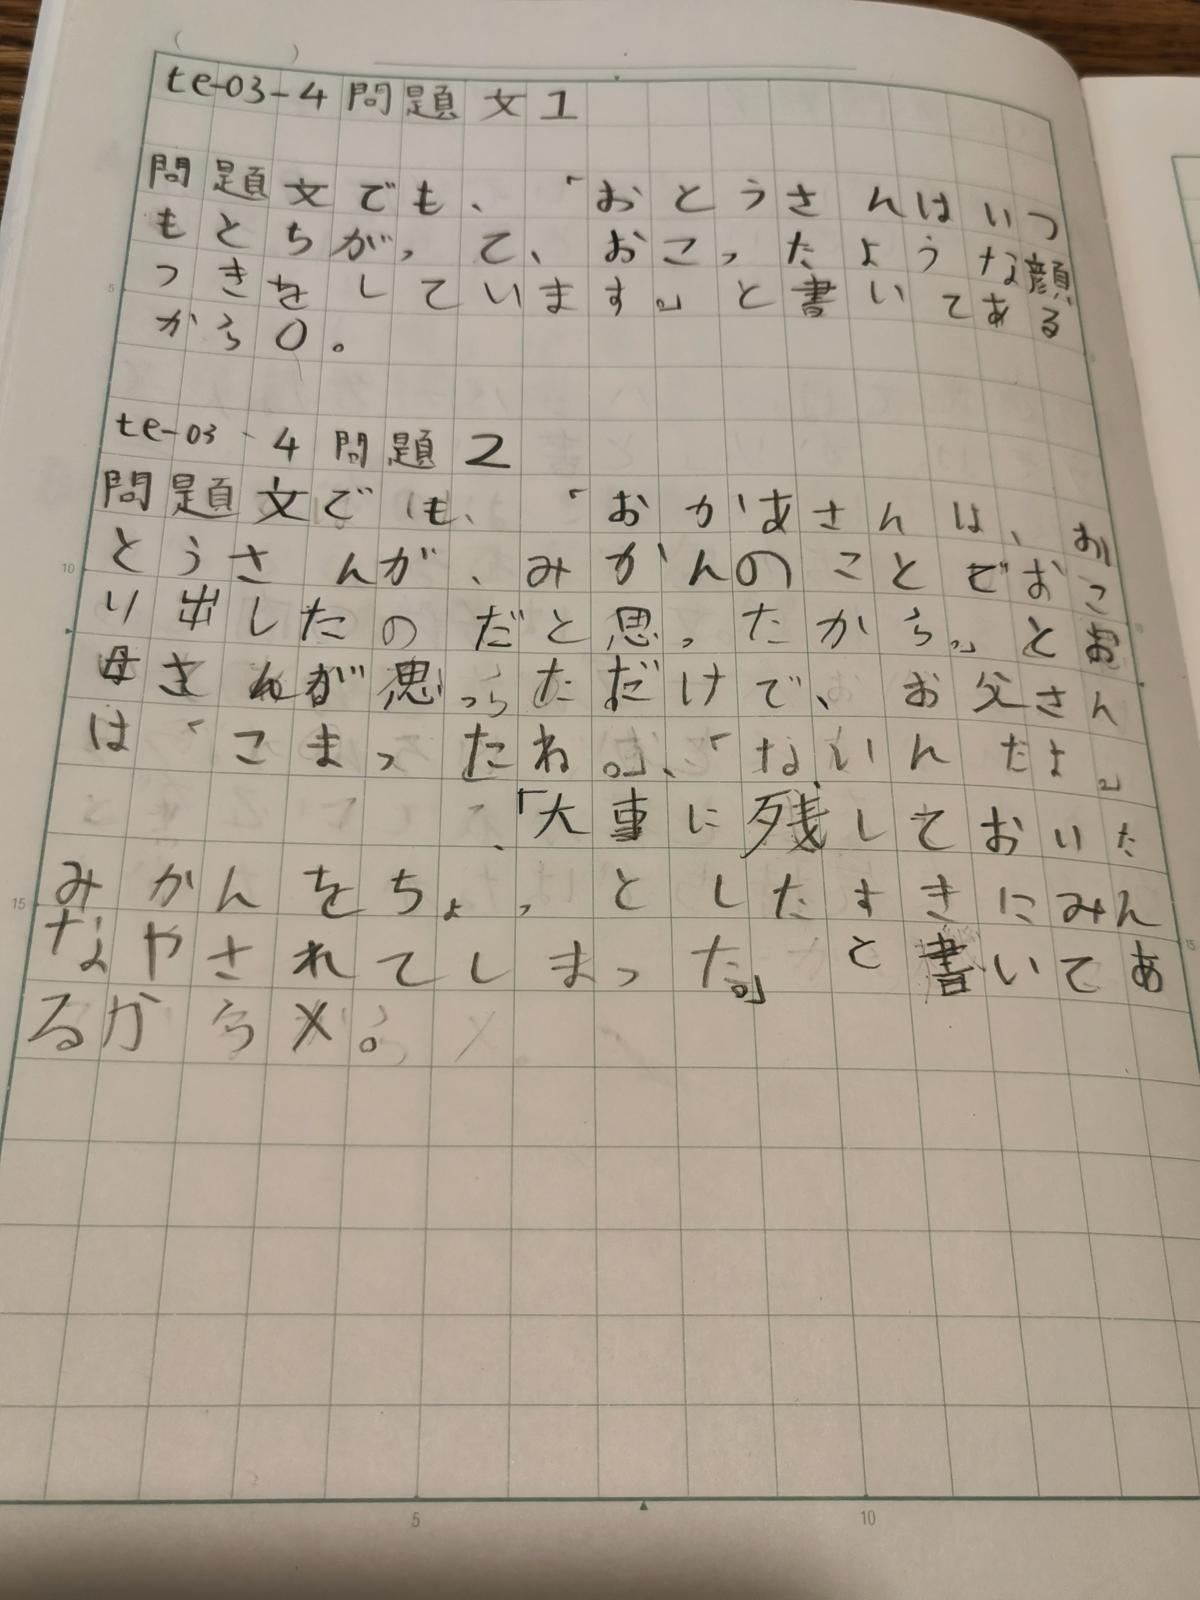 te-03-4問題文1
問題文でも、「おとうさんはいつ
もとちがって、おこったような顔
つきをしています。」と書いてある
から○。
te-03-4問題2
問題文でも、「おかあさんは、お
とうさんが、みかんのことでおこ
り出したのだと思ったから。」とお
母さんが思っただけで、お父さん
は「こまったね。」、「ないんだよ」
、「大事に残しておいた
みかんをちょっとしたすきにみん
なやされてしまった。」と書いてあ
るから×。
5
10
15
5
10